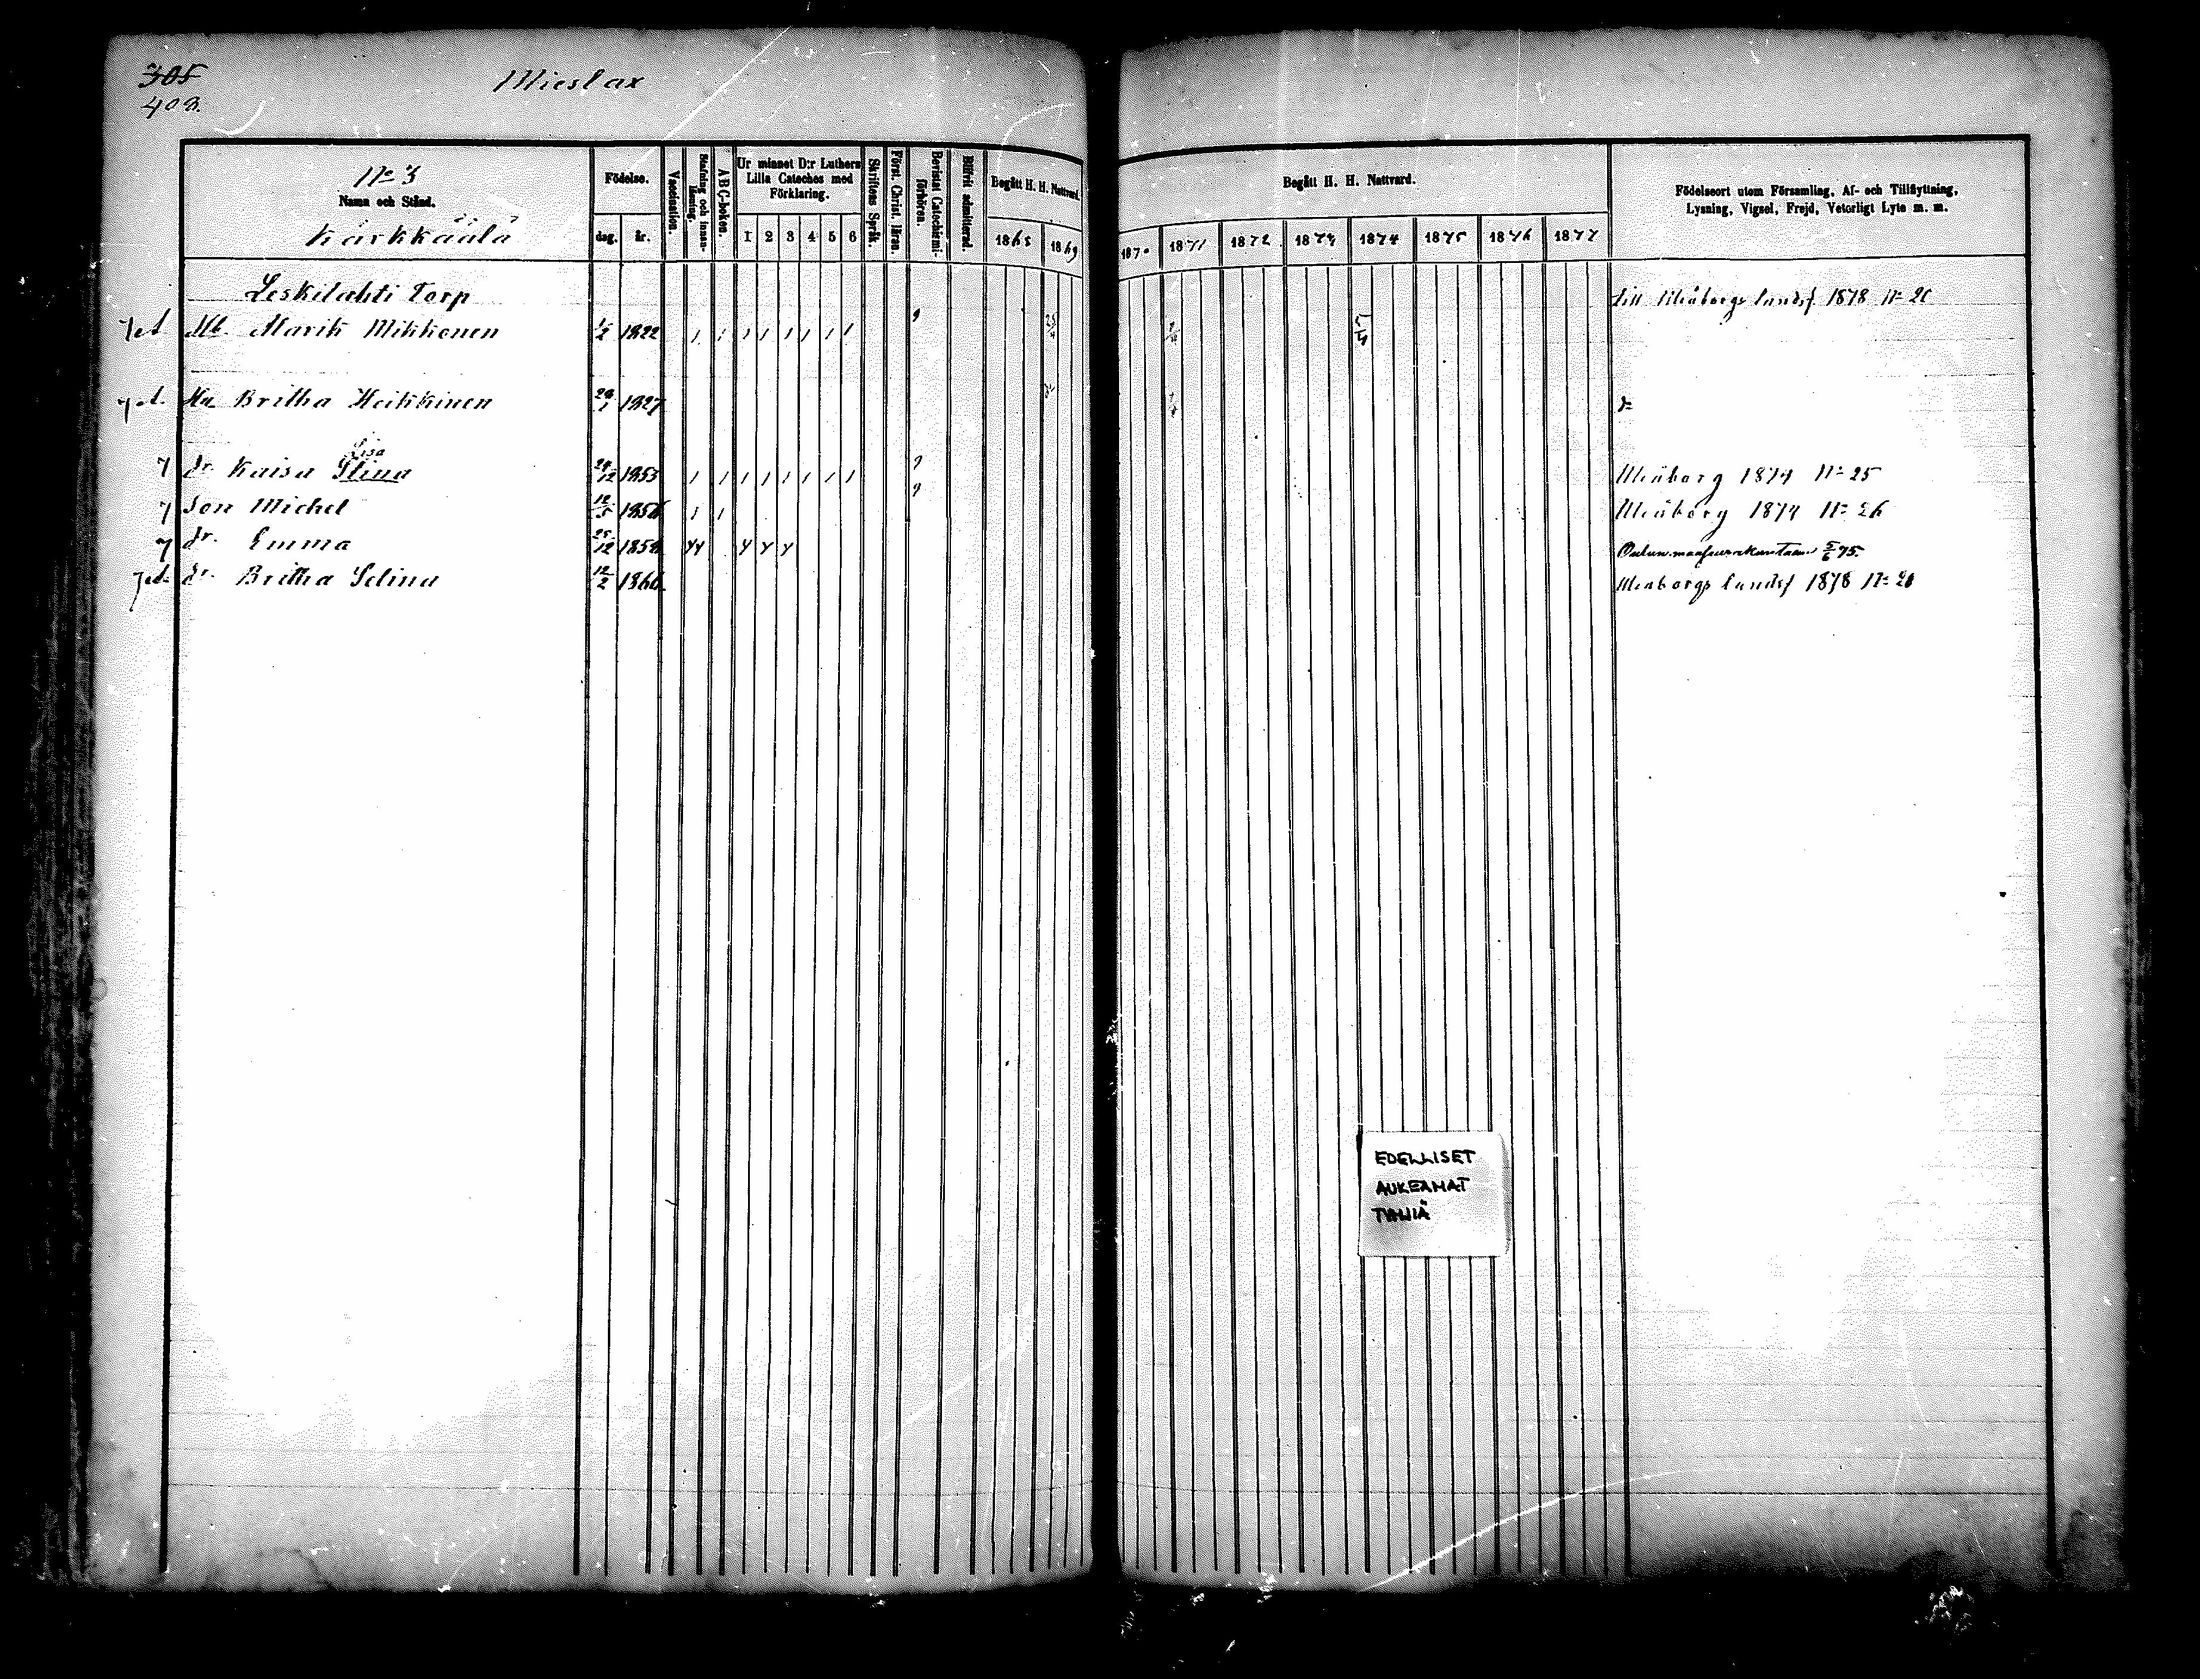 305
403.
Mieslax
N:o 3
Namn och Stånd.
Kärkkäälä
Födelse.
dag. år.
Vaccination.
Stafning och innanläsning.
ABC-boken.
Ur minnet D:r Luthers Lilla Cateches med Förklaring.
1 2 3 4 5 6
Skriftens Språk.
Först. Christ. läran.
Bevistat Catechismiförhören.
Blifvit admitterad.
Begått H. H. Nattvard.
1868 1869
Begått H. H. Nattvard.
1870 1871 1872 1873 1874 1875 1876 1877
Födelseort utom Församling, Af- och Tillflyttning,
Lysning, Vigsel, Frejd, Vetorligt Lyte m. m.
Leskilahti Torp
till Uleåborgs landsf 1878 N:o 20
Marik Mikkonen 1822 / / / / / / / /
Britha Heikkinen 1827
Lisa
dr Kaisa Stina 24/12 1853 / / / / / / / / Uleåborg 1874 N:o 25
Son Michel 12/5 1856 / / Uleåborg 1874 N:o 26
dr. Emma 25/12 1858 5/6 75.
dr. Britha Selina 12/2 1866 Uleaborgs landsf 1878 N:o 20
EDELLISET
AUKEAMAT
TYHJIÄ